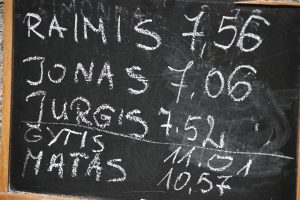 RAIMIS 7,56
JONAS 7,06
JURGIS 7,52
GYTIS 11,01
MATAS 10,57